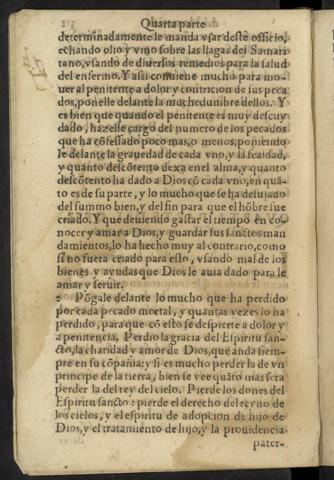 Quarta parte
determinadamente le manda vsar deste officio,
echando olio y vino sobre las llagas del Samari
tano, vsando de diuersos remedios para la salud
del enfermo. Y assi conuiene mucho para mo-
uer al penitente a dolor y contricion de sus peca
dos, ponelle delante la muchedumbre dellos. Y
es bien que quando el penitente es muy descuy
dado, hazelle cargo del numero de los pecados
que ha cõfessado poco mas, o menos, poniendo
le delante la grauedad de cada vno, y la fealdad,
y quanto descõtento dexa en el alma, y quanto
descõtento ha dado a Dios cõ cada vno, en quã-
to es de su parte, y lo mucho que se ha desuiado
del summo bien, y del fin para que el hõbre fue
criado. Y que deuiendo gastar el tiempo en co-
nocer y amar a Dios, y guardar sus sanctos man
damientos, lo ha hecho muy al contrario, como
si no fuera criado para esto, vsando mal de los
bienes y ayudas que Dios le auia dado para le
amar y seruir.
2 Põgale delante lo mucho que ha perdido
por cada pecado mortal, y quantas vezes lo ha
perdido, para que cõ esto se despierte a dolor y
a penitencia. Perdio la gracia del Espiritu san-
cto, la charidad y amor de Dios, que anda siem-
pre en su cõpañia: y si es mucho perder la de vn
principe de la tierra, bien se vee quãto mas sera
perder la del rey del cielo. Pierde los dones del
Espiritu sancto: pierde el derecho del reyno de
los cielos, y el espiritu de adopcion de hijo de
Dios, y el tratamiento de hijo, y la prouidencia
pater-